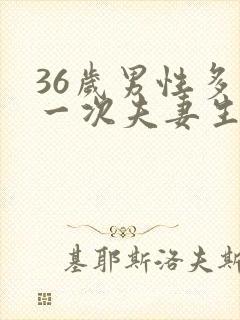 36歲男性多
一次夫妻生
基耶斯洛夫斯